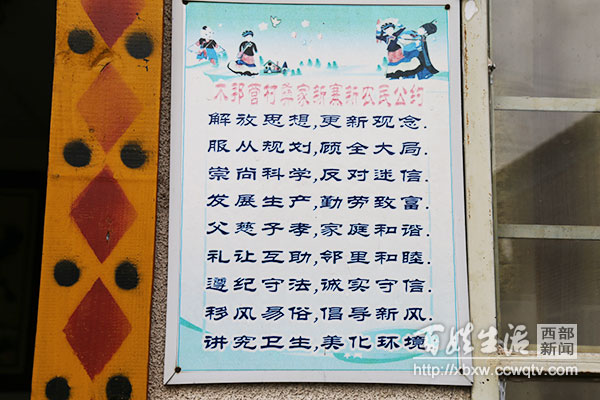 木邦营村彝家新寨新农民公约
解放思想,更新观念.
服从规划,顾全大局.
崇尚科学,反对迷信.
发展生产,勤劳致富.
父慈子孝,家庭和谐.
礼让互助,邻里和睦.
遵纪守法,诚实守信.
移风易俗,倡导新风.
讲究卫生,美化环境
百姓生活 西部新闻
http://xbxw.ccwqtv.com/